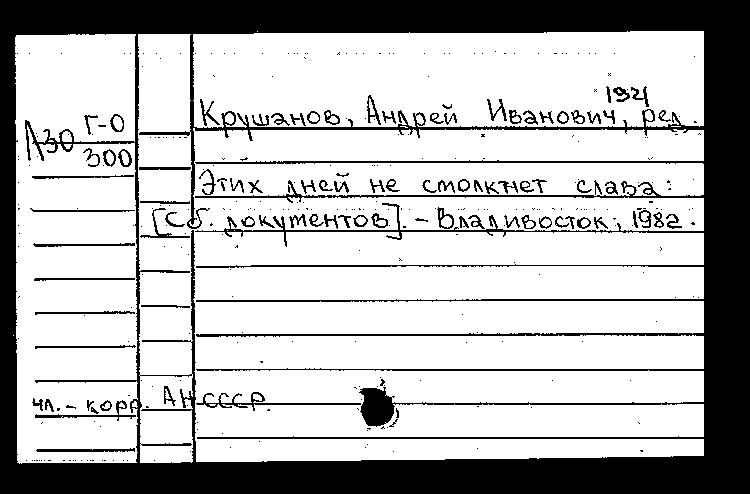 1921
Крушанов, Андрей Иванович, ред.
Л30 Г-О
300
Этих дней не смолкнет слава:
[Сб. документов]. – Владивосток, 1982.
чл. – корр. АН СССР.